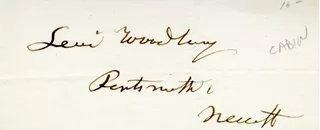 10 -
CABIN
Levi Woodbury
Portsmouth